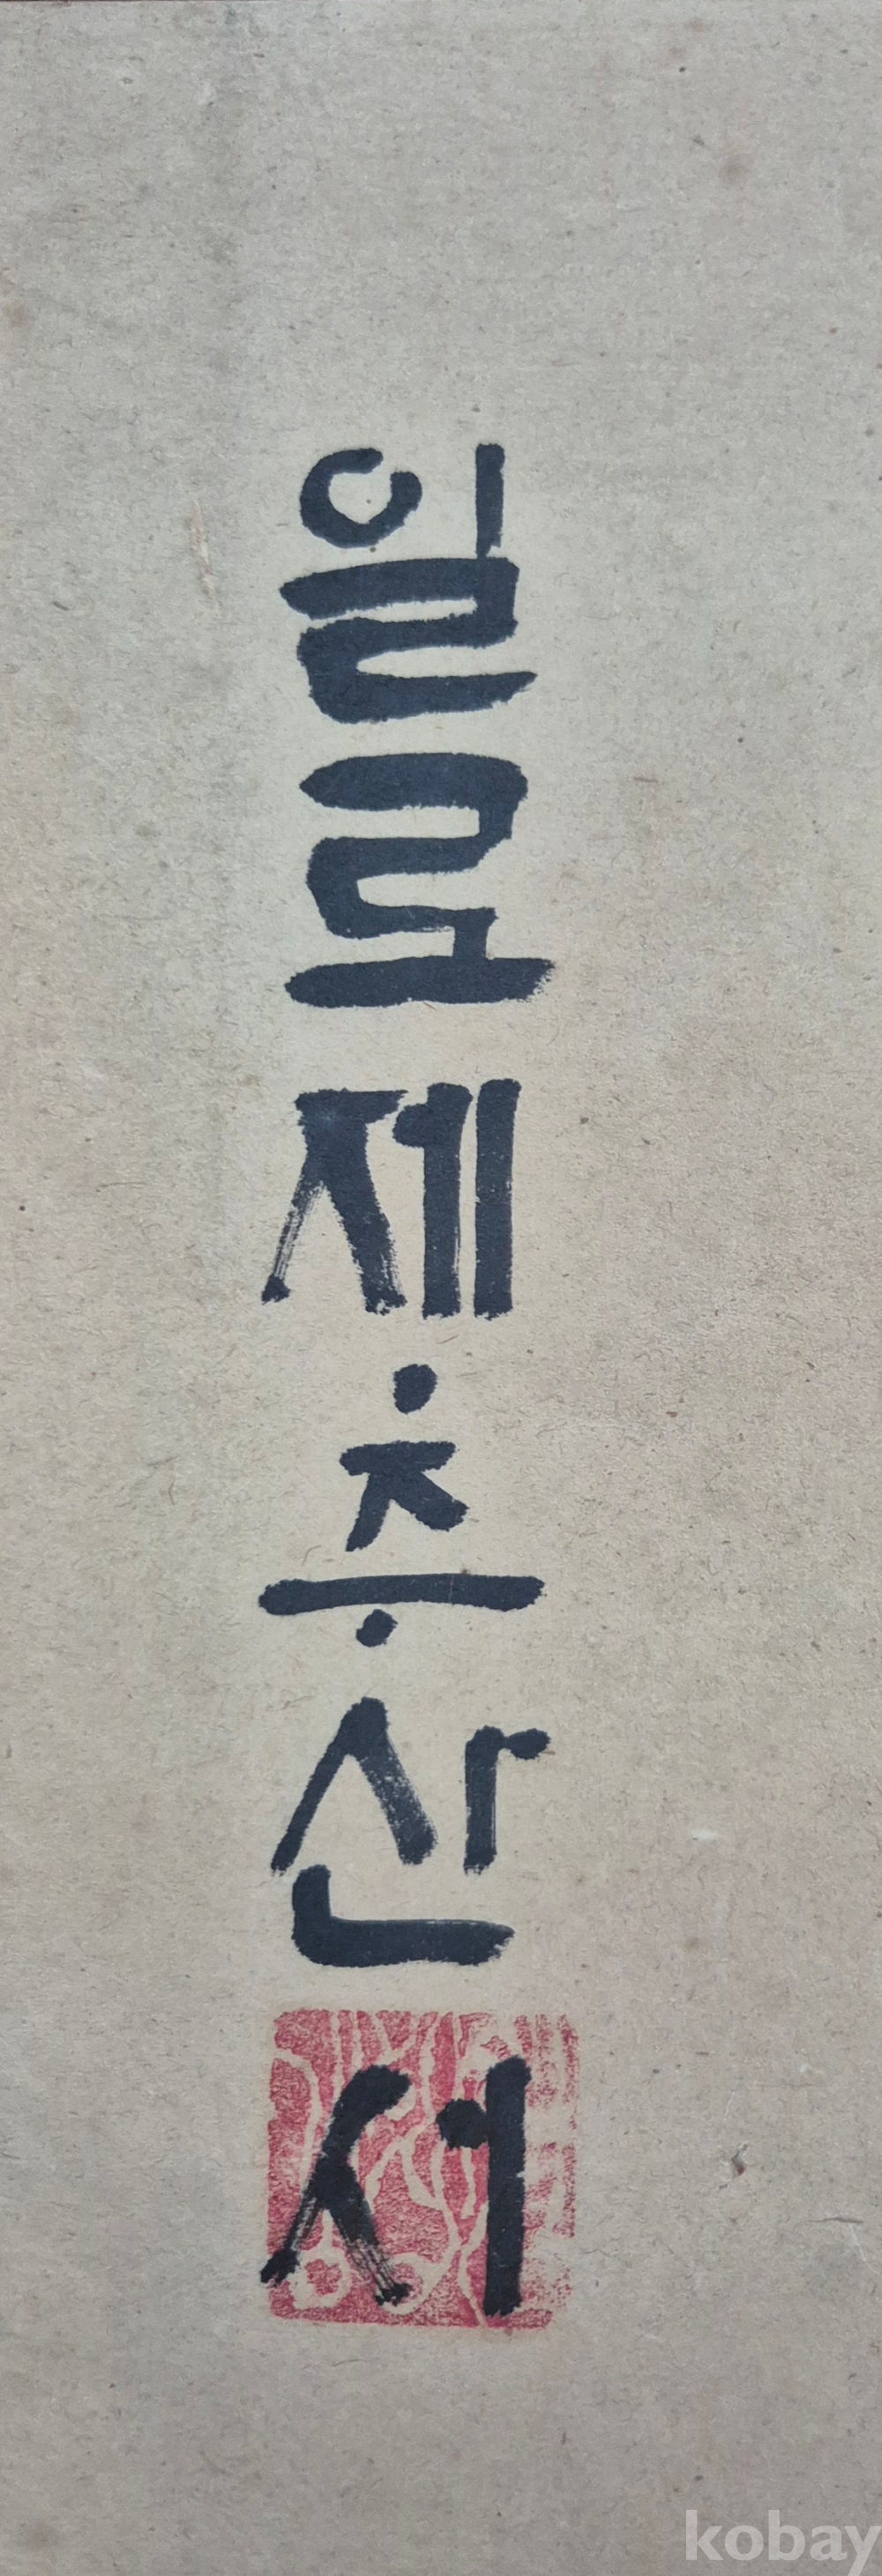 일로제추산서
kobay